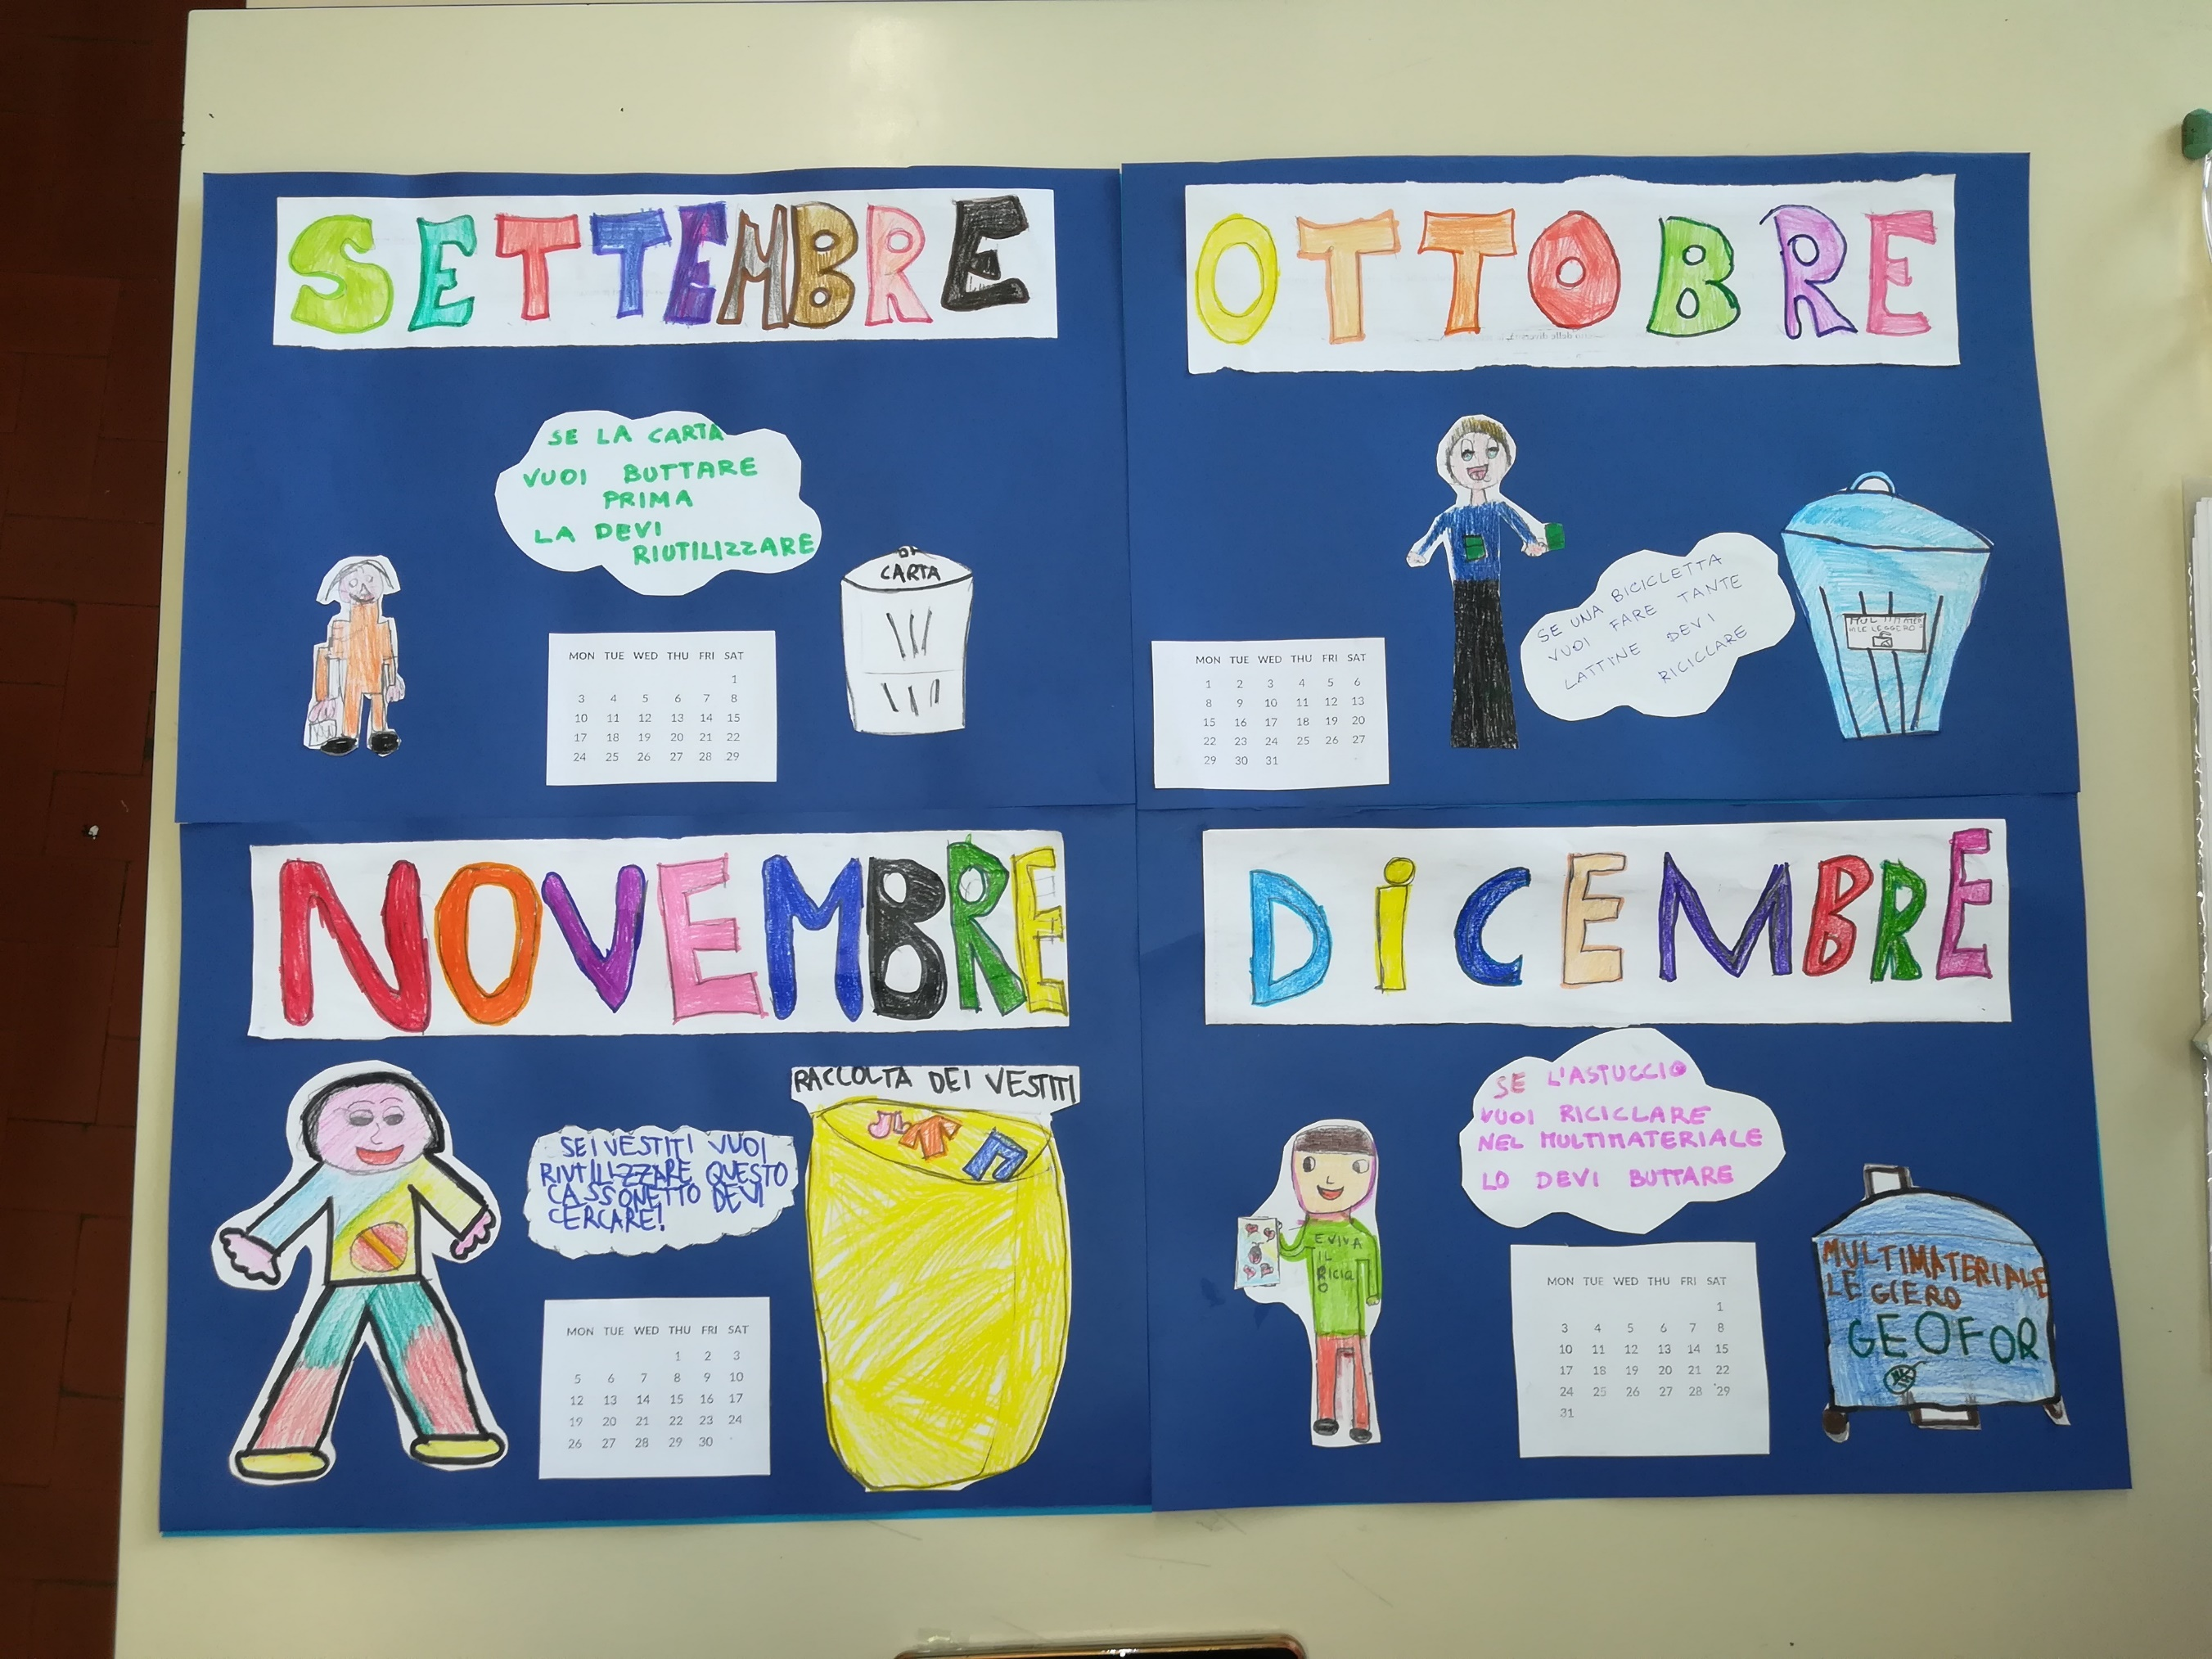 SETTEMBRE
SE LA CARTA
VUOI BUTTARE
PRIMA
LA DEVI
RIUTILIZZARE
CARTA
MON TUE WED THU FRI SAT
1
3 4 5 6 7 8
10 11 12 13 14 15
17 18 19 20 21 22
24 25 26 27 28 29
OTTOBRE
SE UNA BICICLETTA
VUOI FARE TANTE
LATTINE DEVI
RICICLARE
MON TUE WED THU FRI SAT
1 2 3 4 5 6
8 9 10 11 12 13
15 16 17 18 19 20
22 23 24 25 26 27
29 30 31
NOVEMBRE
RACCOLTA DEI VESTITI
SE I VESTITI VUOI
RIUTILIZZARE QUESTO
CASSONETTO DEVI
CERCARE!
MON TUE WED THU FRI SAT
1 2 3
5 6 7 8 9 10
12 13 14 15 16 17
19 20 21 22 23 24
26 27 28 29 30
DiCEMBRE
SE L'ASTUCCIO
VUOI RICICLARE
NEL MULTIMATERIALE
LO DEVI BUTTARE
EVIVA
IL
RICICL
O
MON TUE WED THU FRI SAT
1
3 4 5 6 7 8
10 11 12 13 14 15
17 18 19 20 21 22
24 25 26 27 28 29
31
MULTIMATERIALE
LEGGIERO
GEOFOR